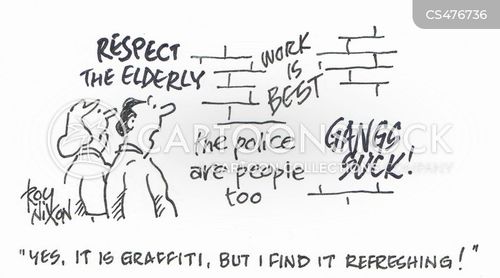 CS476736
RESPECT
THE ELDERLY
WORK
IS
BEST
The police
are people
too
GANGS
SUCK!
CARTOONSTOCK
CARTOON COLLECTIONS COMPANY
ROY
NIXON
"YES, IT IS GRAFFITI, BUT I FIND IT REFRESHING!"